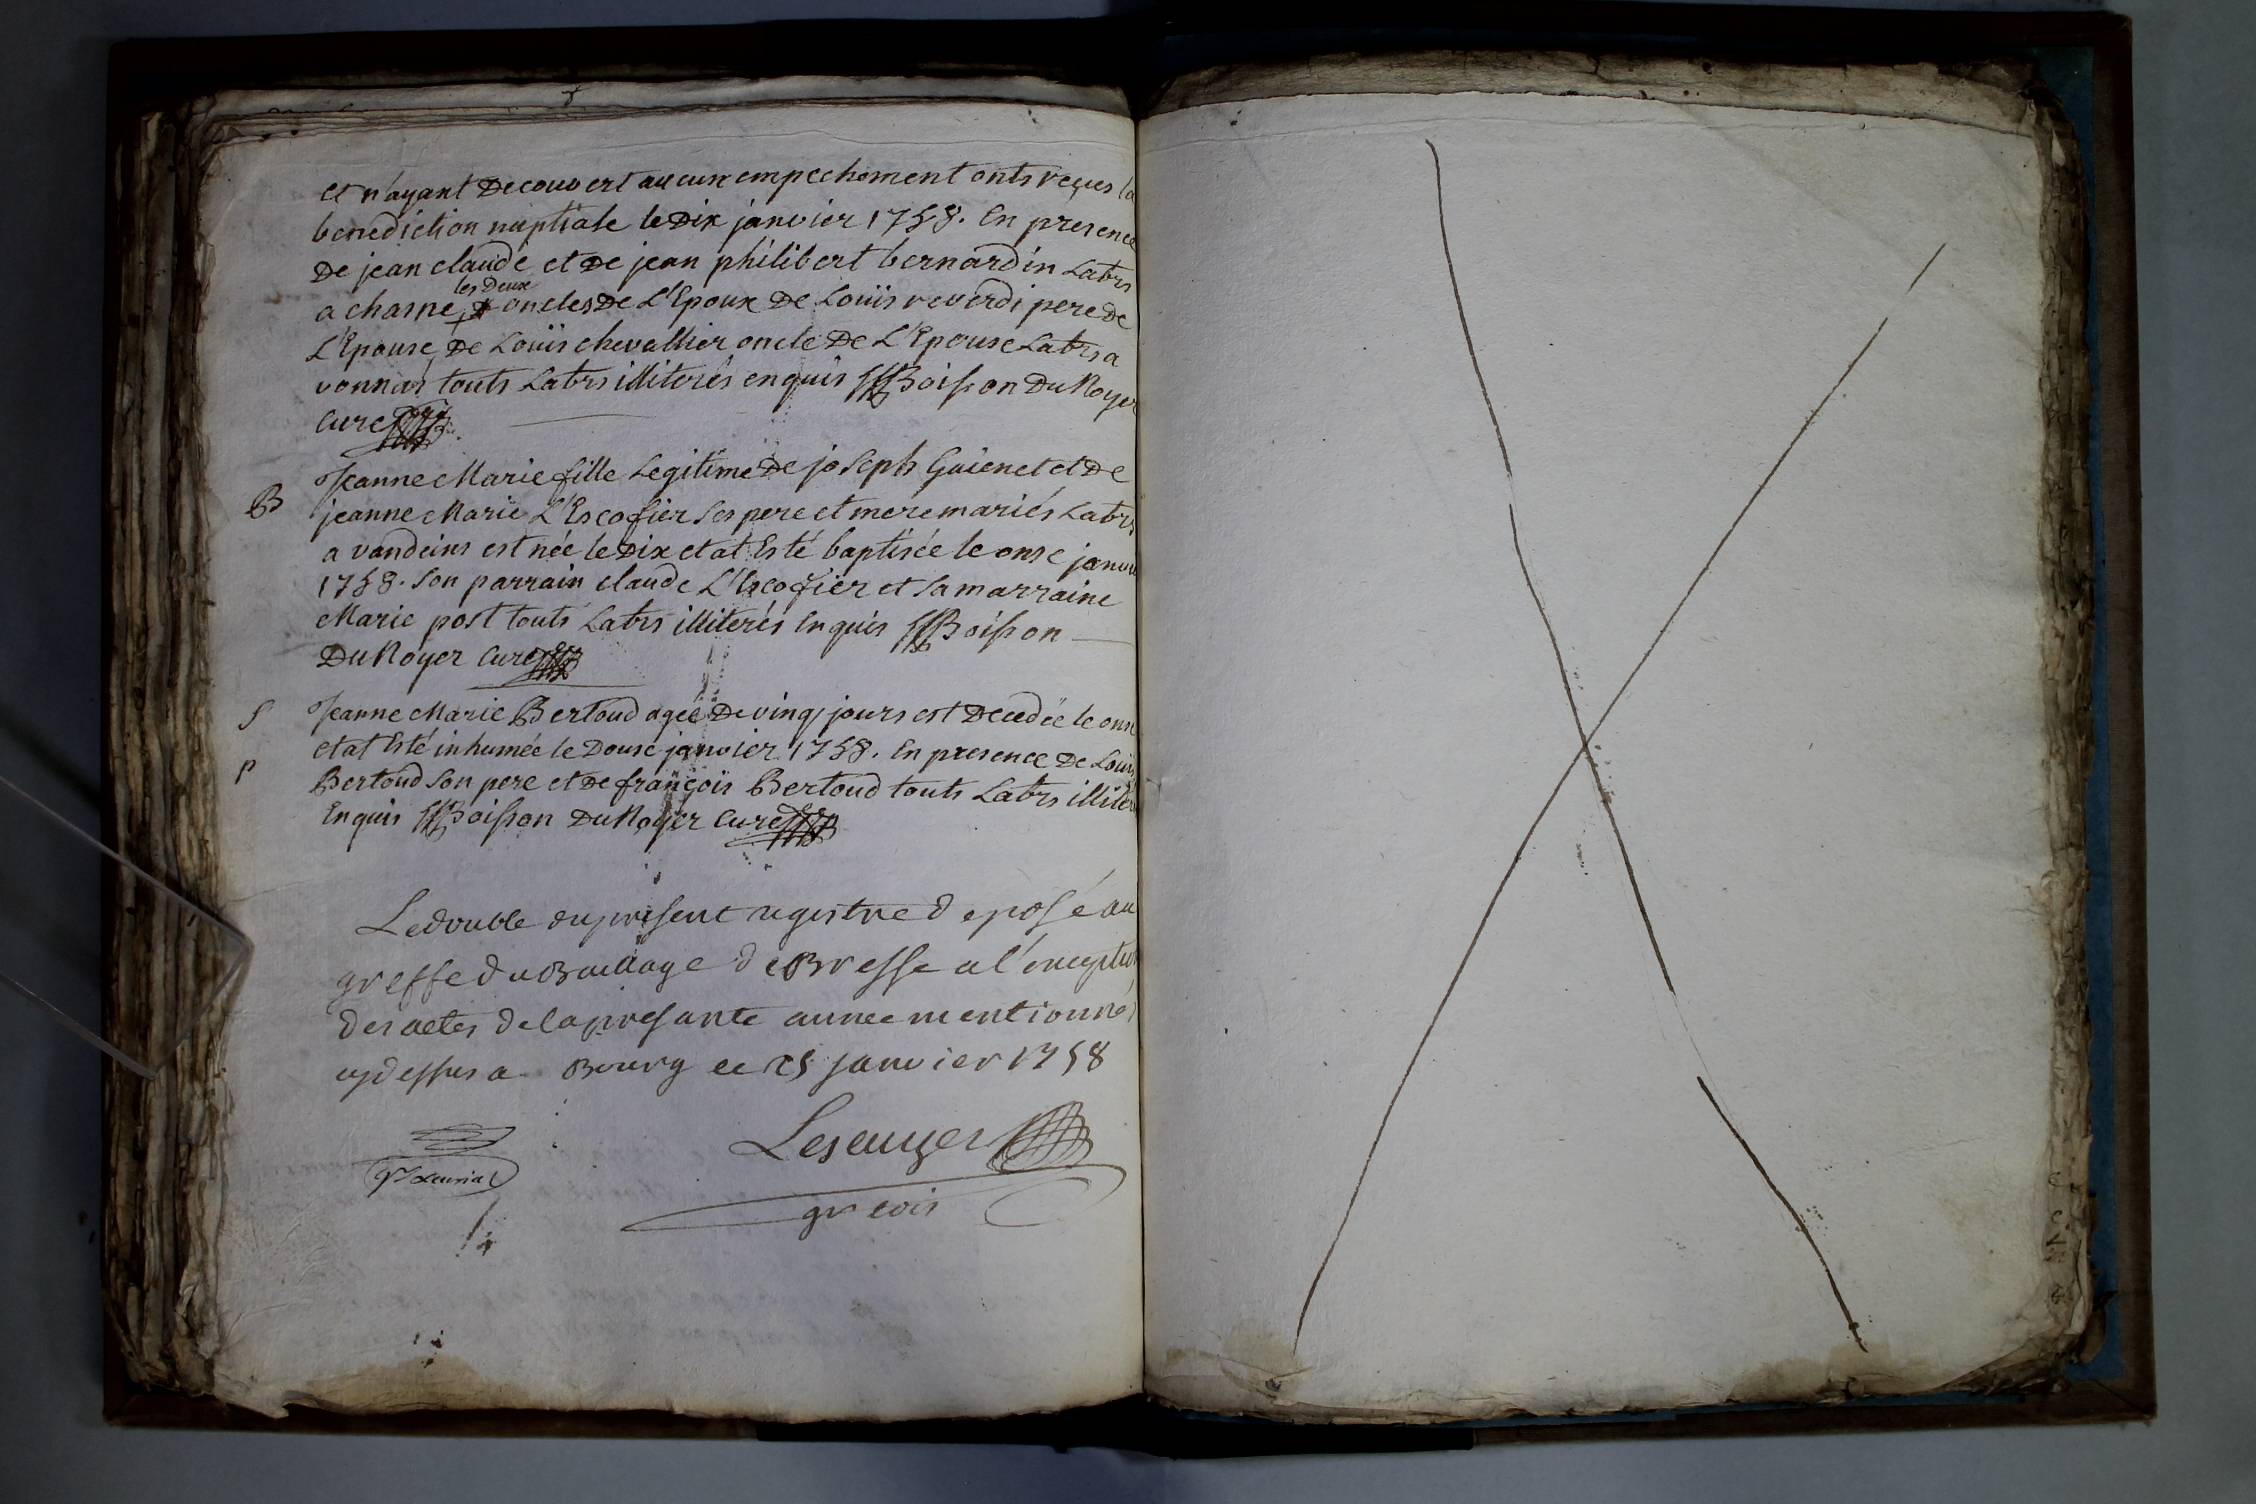 et n'ayant decouvert aucun empechement onts reçus la
benediction nuptiale le dix janvier 1758. En presence
de jean claude et de jean philibert bernardin Labrs
les deux
a charne oncles de L'Epoux de Louïs reverdi pere de
L'Epouse, de Louïs chevallier oncle de L'Epouse Labrs a
vonnas touts Labrs illiterés enquis Boisson Du Noyer
Curé
Jeanne Marie fille Legitime de joseph Guienet et de
B
jeanne Marie L'Escofier ses pere et mere mariés Labrs
a vandeins est née le dix et at Esté baptisée le onse janvier
1758. Son parrain claude L'Escofier et sa marraine
Marie post touts Labrs illiterés Enquis Boisson
Du Noyer Curé
S
Jeanne Marie Bertoud agée de vingt jours est decedée le onse
et at Esté inhumée le Douse janvier 1758. En presence de Louis
p
Bertoud son pere et de françois Bertoud touts Labrs illiterés
Enquis Boisson Du Noyer Curé
Le double du present registre deposé au
greffe du Baillage de Bresse a l'exception
des actes de la presante année mentionnés
cy dessus a Bourg ce 25 janvier 1758